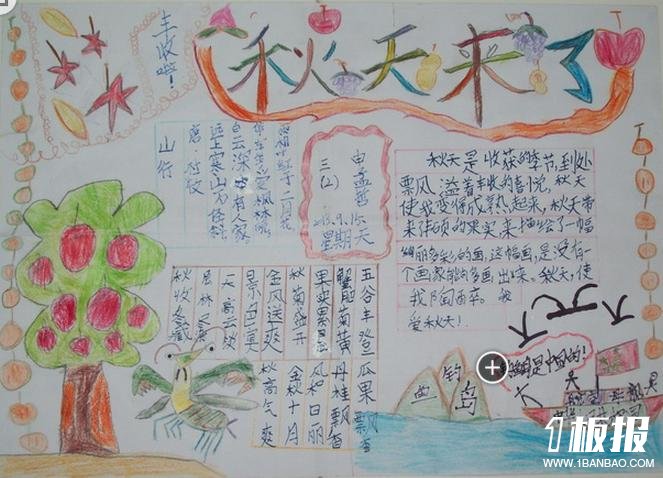 丰收啦！
秋天来了
山行
唐 杜牧
远上寒山石径斜
白云深处有人家
停车坐爱枫林晚
霜叶红于二月花
三(2)
星期天
秋天是收获的季节,到处
飘风,溢着丰收的喜悦,秋天
使我变得成熟起来,秋天带
来佳硕的果实,来描绘了一幅
绚丽多彩的画,这幅画,是没有
一个画家能够画出来。秋天,使
爱秋天!
五谷丰登 瓜果飘香
蟹肥菊黄 丹桂飘香
果实累累 风和日丽
秋菊盛开 金秋十月
金风送爽 秋高气爽
天高云淡
秋收冬藏
钓
岛
是中国的!
1板报
WWW.1BANBAO.COM